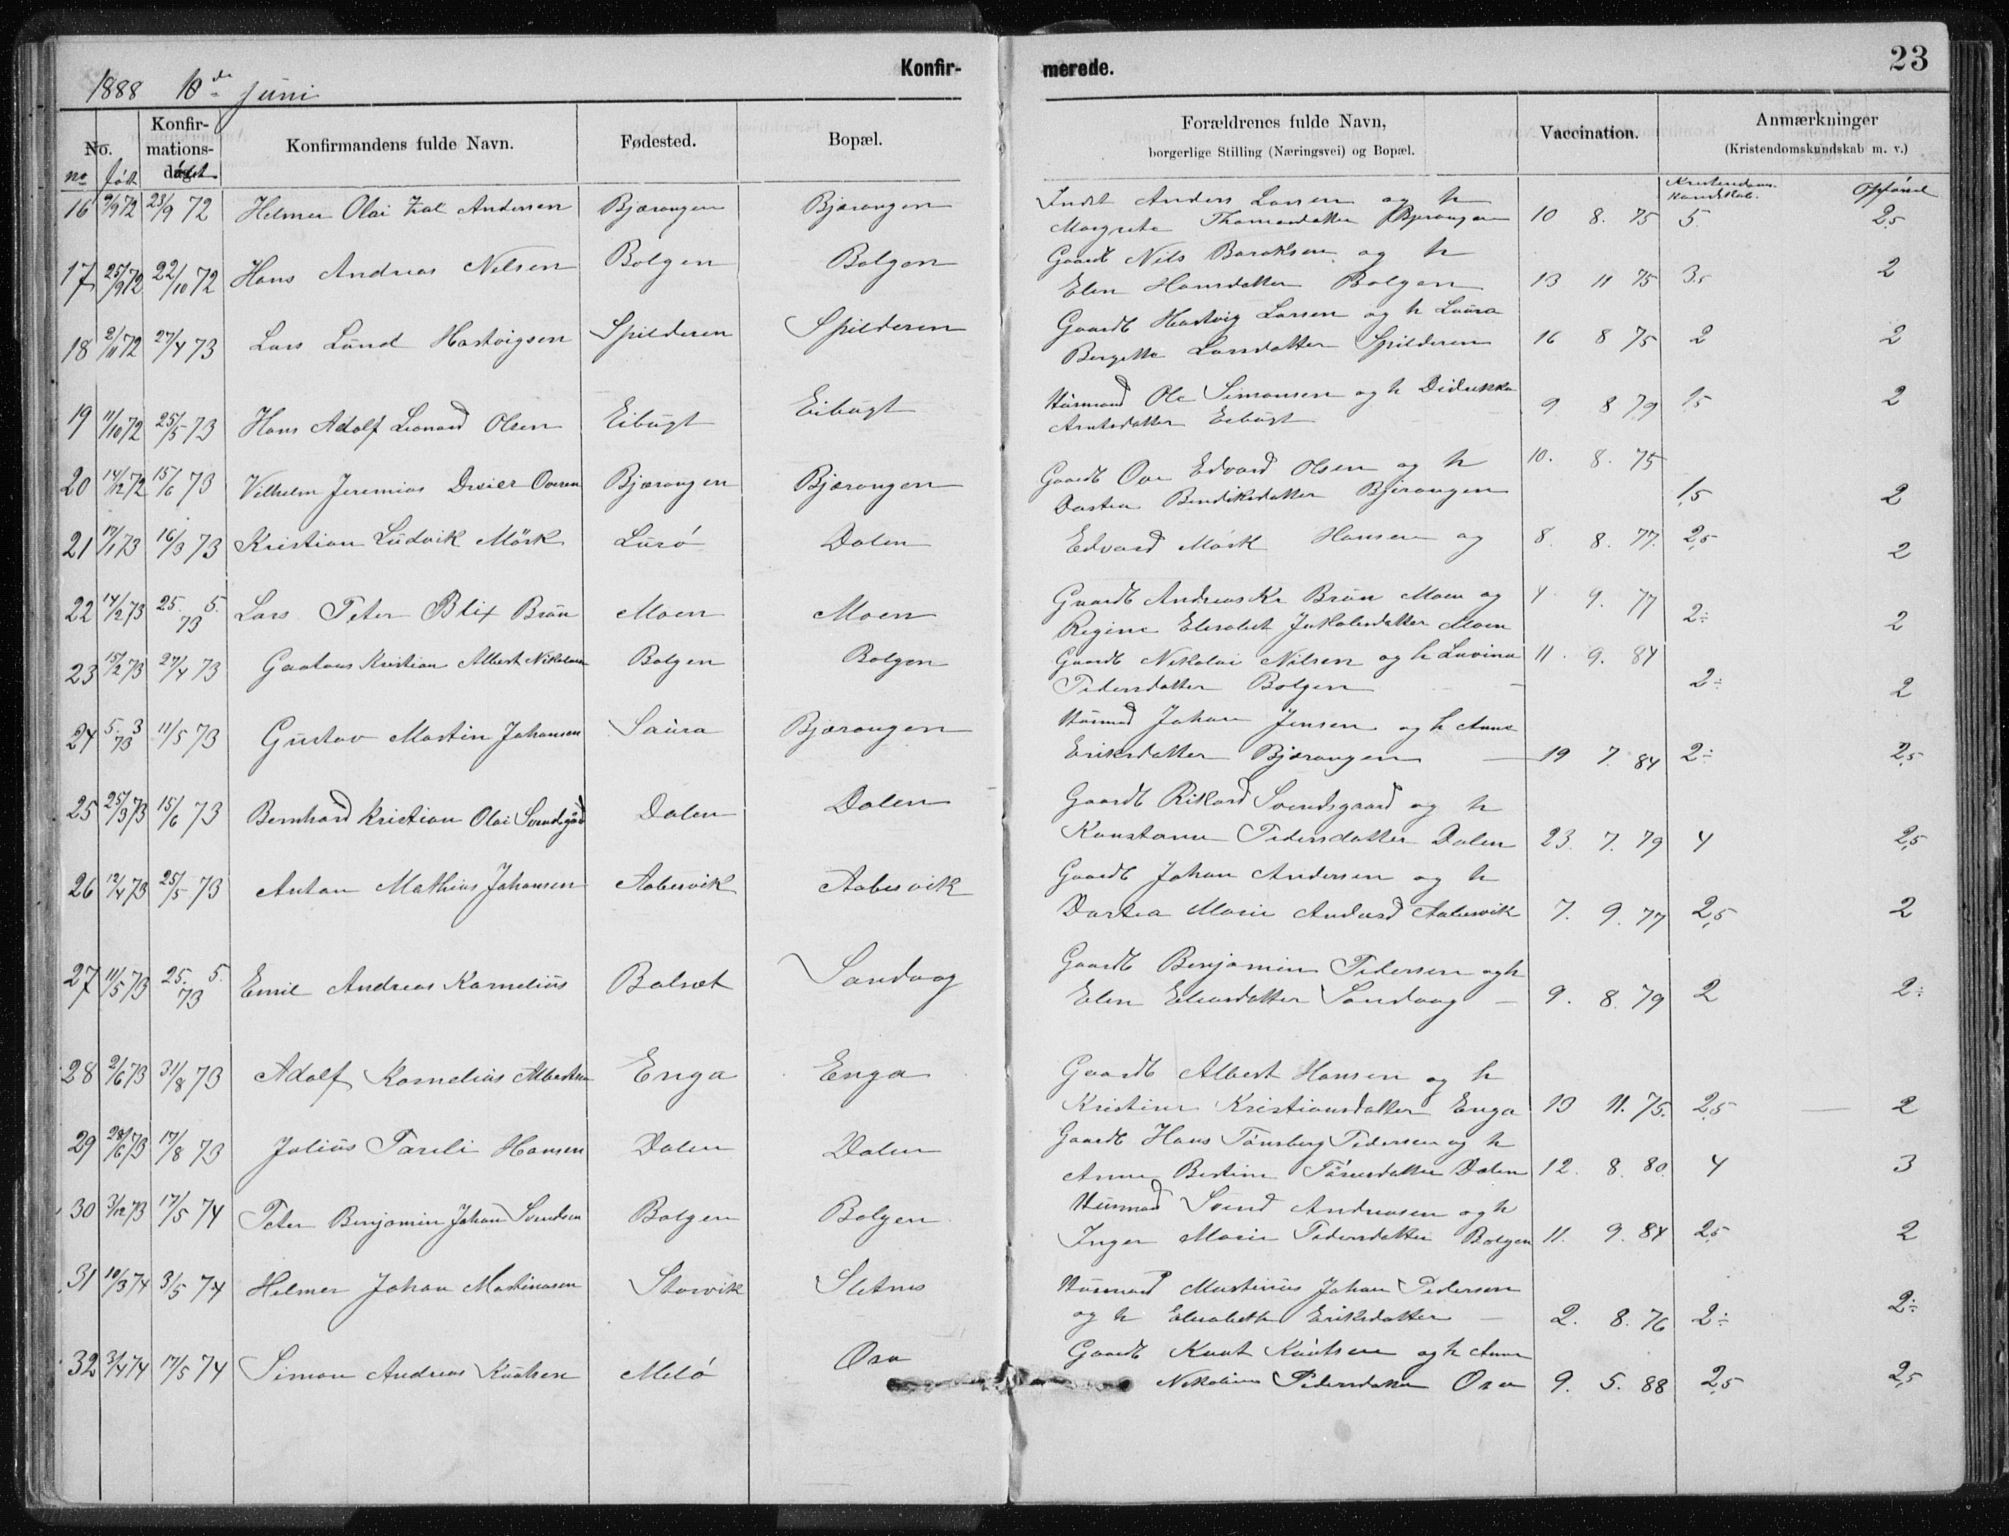 23
Konfir- merede.
1888 10de juni
No. Konfir-mations-daget Konfirmandens fulde Navn. Fødested. Bopæl. Forældrenes fulde Navn, borgerlige Stilling (Næringsvei) og Bopæl. Vaccination. Anmærkninger (Kristendomskundskab m. v.)
no født døbt Kristendoms-kundskab. Opførsel
16 9/9 72 23/9 72 Helmer Olai Andersen Bjærangen Bjærangen Inds Anders Larsen og h
Margrete Thomasdatter Bjærangen 10 8. 75 5. 2,5
17 25/9 72 22/10 72 Hans Andreas Nilsen Bolgen Bolgen Gaardb Nils Baroksen og h
Elen Hansdatter Bolgen 13 11 75 3, 2
18 2/11 72 27/4 73 Lars Lund Hartvigsen Spilderen Spilderen Gaardb Hartvig Larsen og h Laura
Bergette Larsdatter Spilderen 16 8 75 2 2
19 11/10 72 25/5 73 Hans Adolf Leonard Olsen Eibugt Eibugt Husmand Ole Simonsen og h Didrikka
Arntsdatter Eibugt 9 8 79 1,5 2
20 14/12 72 15/6 73 Vilhelm Jeremias Oversen Bjærangen Bjærangen Gaardb Ove Edvard Olsen og h 10. 8. 75
Dortea Bendiksdatter Bjerangen 1,5 2
21 17/1 73 16/3 73 Kristian Ludvik Mörk Lurö Dalen Edvard Mörk Hansen og 8. 8. 77. 2,5 2
22 14/2 73 25. 5. 73 Lars Peter Blix Brün Moen Moen Gaardb Andreas Kr Brün Moen og 4. 9. 77
Regine Elisabet Jakobsdatter Moen 2÷ 2
23 15/2 73 27/4 73 Kristian Albert Nikolaisen Bolgen Bolgen Gaardb Nikolai Nilsen og h Lavina 11. 9. 84
Pedersdatter Bolgen — 2÷ 2
24 5. 3 73 11/5 73 Gustav Martin Johansen Saura Bjærangen Husmd Johan Jensen og h Anne
Eriksdatter Bjærangen — 19 7. 84 2÷ 2,5
25 25/3 73 15/6 73 Bernhard Kristian Olai Svendsgård Dalen Dalen Gaardb Rikard Svendsgaard og h
Konstanse Pedersdatter Dalen 23. 7. 79 4 2,5
26 12/4 73 25/5 73 Anton Mathias Johansen Aabervik Aabervik Gaardb Johan Andersen og h
Dortea Marie Andersd Aabervik 7. 9. 77 2,5 2
27 11/5 73 25. 5. 73 Emil Andreas Kornelius Balsæt Sandvog Gaardb Benjamin Pedersen og h
Elen Eliasdatter Sandvaag — 9. 8. 79 2 2÷
28 2/6 73 31/8 73 Adolf Kornelius Albertsen Enga Enga Gaardb Albert Hansen og h
Kristine Kristiansdatter Enga 13 11. 75. 2,5 — 2
29 28/6 73 17/8 73 Julius Pareli Hansen Dalen Dalen Gaardb Hans Tönsberg Pedersen og h
Anne Bertine Dalen 12. 8. 80. 4 3
30 3/12 73 17/5 74 Peter Benjamin Johan Svendsen Bolgen Bolgen Husmand Svend Andreasen og h
Inger Marie Pedersdatter Bolgen 11. 9. 84 2,5 2
31 10/3 74 3/5 74 Helmer Johan Martinusen Storvik Sletnes Husmand Martinus Johan Pedersen
og h Elisabeth Eriksdatter — 2. 8. 76 2÷ 2÷
32 3/4 74 17/5 74 Simon Andreas Knutsen Melö Osa Gaardb Knut Knutsen og h Anne
Nikoline Pedersdatter Osa 9. 5. 88 2,5 2,5